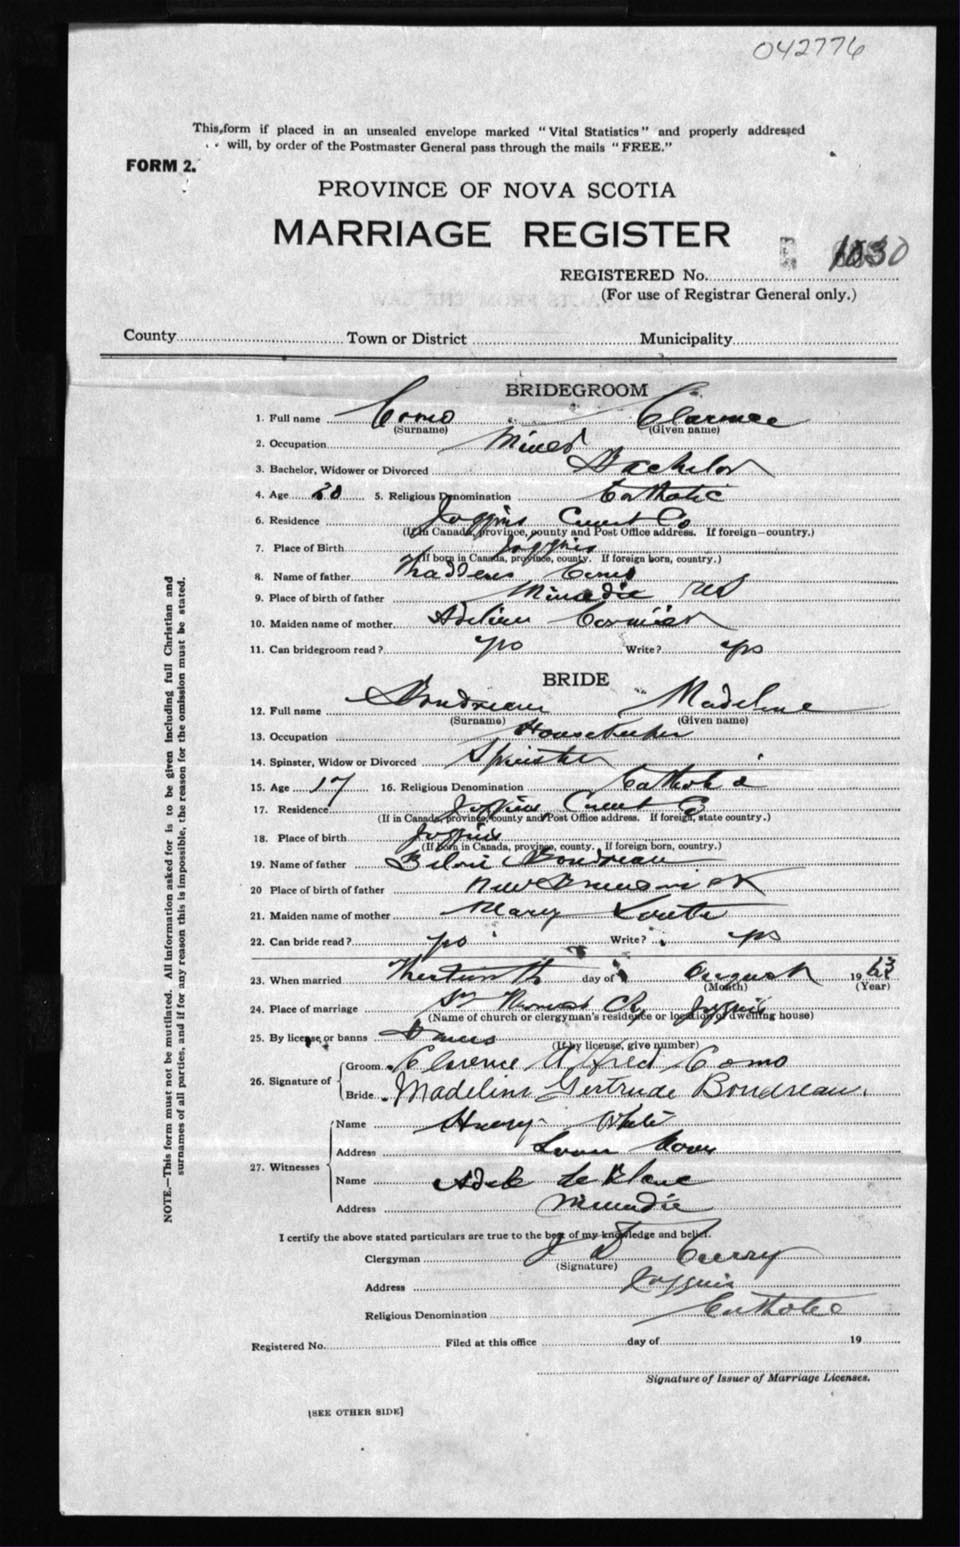 042776
This form if placed in an unsealed envelope marked "Vital Statistics" and properly addressed
will, by order of the Postmaster General pass through the mails "FREE."
FORM 2.
PROVINCE OF NOVA SCOTIA
MARRIAGE REGISTER
REGISTERED No.
(For use of Registrar General only.)
County Town or District Municipality
BRIDEGROOM
1. Full name Como Clarence
(Surname) (Given name)
2. Occupation Miner
3. Bachelor, Widower or Divorced Bachelor
4. Age 20 5. Religious Denomination Catholic
6. Residence Joggins Co
(If in Canada, province, county and Post Office address. If foreign—country.)
7. Place of Birth Joggins
(If born in Canada, province, county. If foreign born, country.)
8. Name of father Thaddeus Como
9. Place of birth of father Minudie NS
10. Maiden name of mother Cormier
11. Can bridegroom read? yes Write? yes
BRIDE
12. Full name Boudreau Madeline
(Surname) (Given name)
13. Occupation Housekeeper
14. Spinster, Widow or Divorced Spinster
15. Age 17 16. Religious Denomination Catholic
17. Residence Joggins Co
(If in Canada, province, county and Post Office address. If foreign, state country.)
18. Place of birth Joggins
(If born in Canada, province, county. If foreign born, country.)
19. Name of father Boudreau
20 Place of birth of father New Brunswick
21. Maiden name of mother Mary
22. Can bride read? yes Write? yes
23. When married Thirteenth day of August 19
(Month) (Year)
24. Place of marriage St Thomas Ch Joggins
(Name of church or clergyman's residence or location of dwelling house)
25. By license or banns Banns
(If by license, give number)
26. Signature of
Groom Clarence Alfred Como
Bride Madeline Gertrude Boudreau.
27. Witnesses
Name White
Address
Name Adele LeBlanc
Address Minudie
I certify the above stated particulars are true to the best of my knowledge and belief.
Clergyman J D Curry
(Signature)
Address Joggins
Religious Denomination Catholic
Registered No. Filed at this office day of 19
Signature of Issuer of Marriage Licenses.
[SEE OTHER SIDE]
NOTE.—This form must not be mutilated. All information asked for is to be given including full Christian and
surnames of all parties, and if for any reason this is impossible, the reason for the omission must be stated.